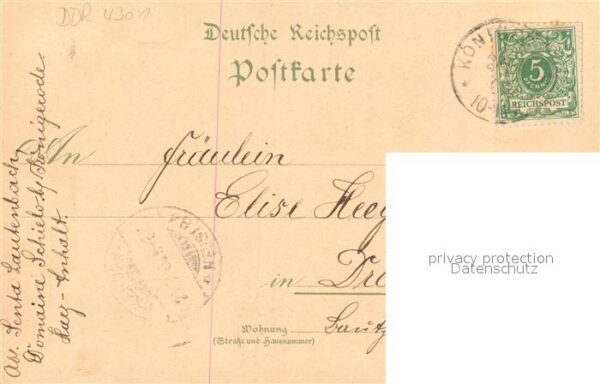 DDR 4301
Deutsche Reichspost
Postkarte
KÖNI
10-
5
REICHSPOST
An
Fräulein
Elise Heeg
in Dre
Wohnung
(Straße und Hausnummer)
Bautz
Abs. Senta Lautenbach,
Domaine Schielo b/ Königerode.
Harz-Anhalt.
privacy protection
Datenschutz